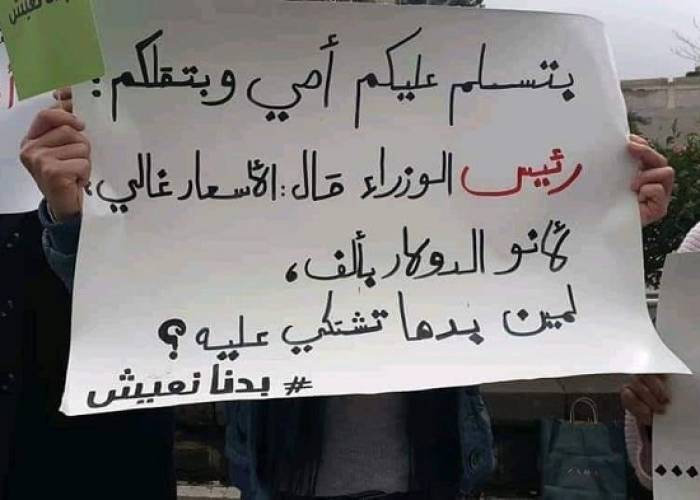 بدنا نعيش
بتسلم عليكم أمي وبتقلكم:
رئيس الوزراء قال: الأسعار غالي،
لأنو الدولار بألف،
لمين بدها تشتكي عليه؟
# بدنا نعيش
...